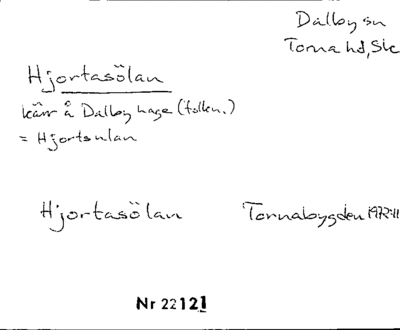 Dalby sn
Torna hd, Sk
Hjortasölan
kärr å Dalby hage (folkn.)
= Hjortsulan
Hjortasölan Tornabygden 1972:11
Nr 22121